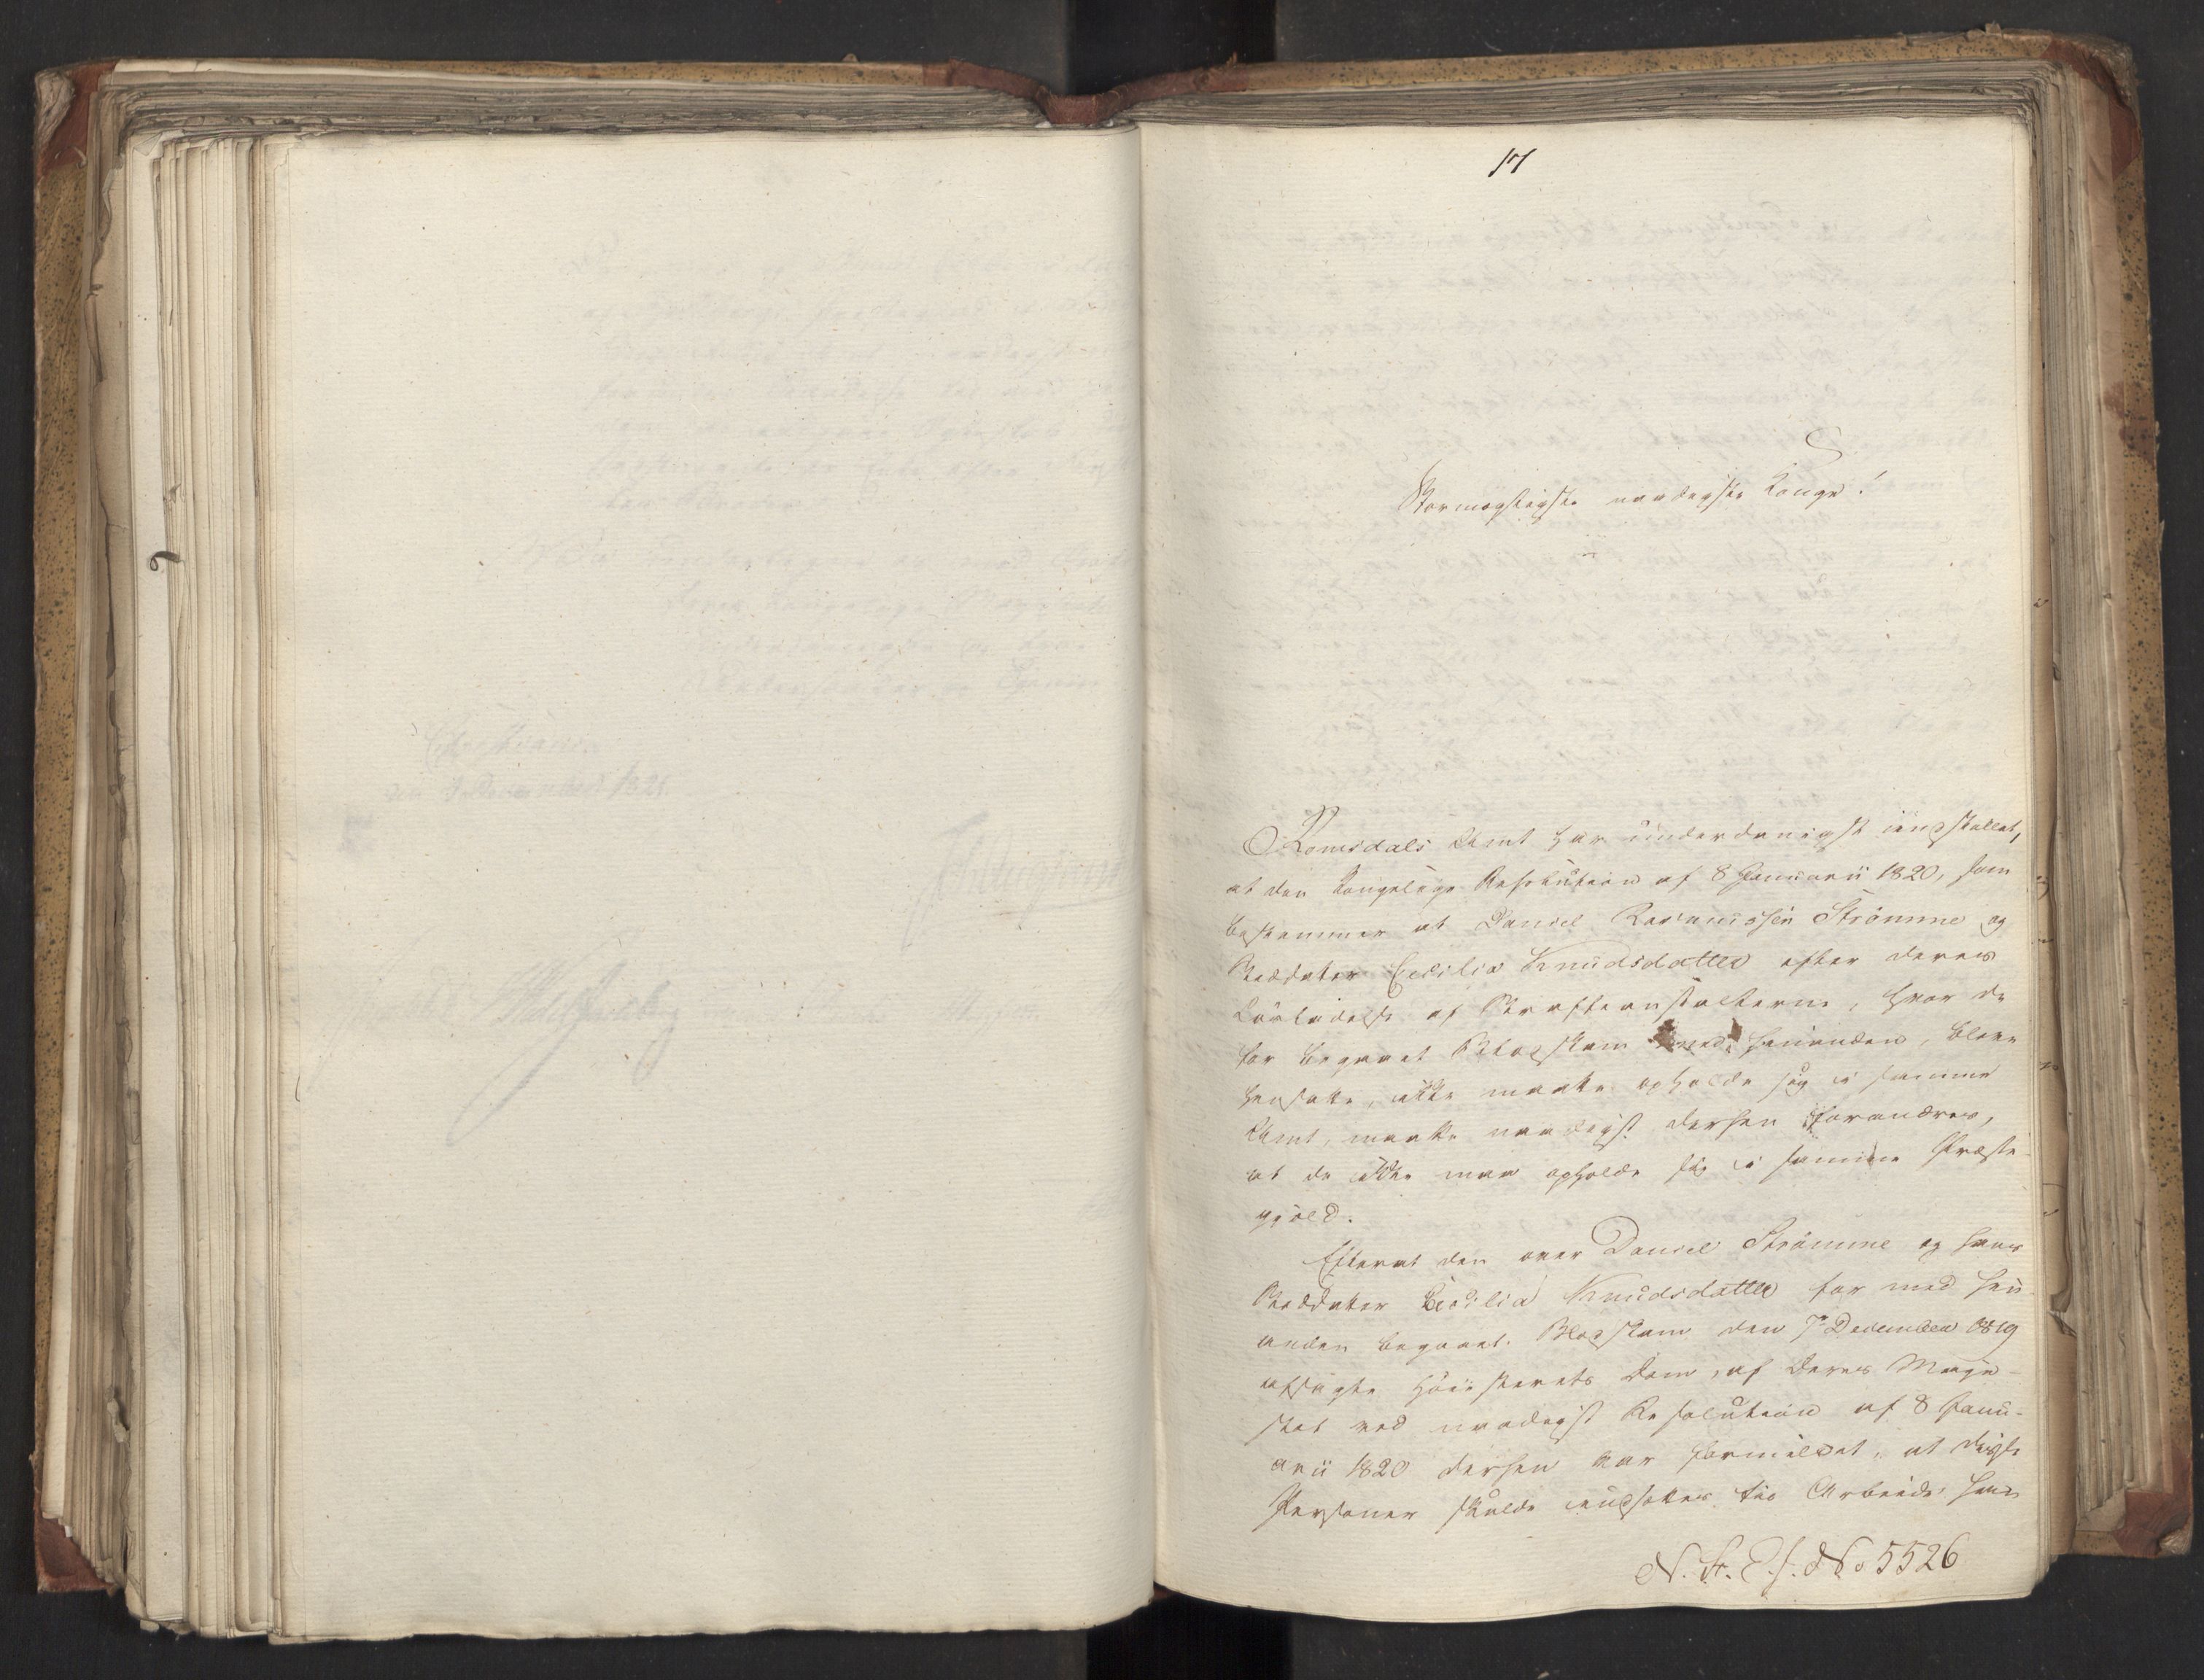 17
Stormægtigste naadigste Konge!
Romsdals Amt har underdanigst indstillet,
at den Kongelige Resolution af 8 Januarii 1820, som
bestemmer at Daniel Rasmussen Strömme og
Steddatter Cecilia Knudsdatter efter deres
Løsladelse af Strafanstalterne, hvor de
for begaaet Blodskam med hinanden, bleve
hensatte, ikke maatte opholde sig i samme
Amt, maatte naadigst derhen forandres,
at de ikke maa opholde sig i samme Præste-
gjeld.
Efterat den over Daniel Strömme og hans
Steddatter Cecilia Knudsdatter for med hin-
anden begaaet Blodskam den 7de December 1819
afsagte Høiesterets Dom, af Deres Maje-
stæt ved naadigst Resolution af 8 Janu-
arii 1820 derhen var formildet, at disse
Personer skulde indsættes til Arbeide, han
N. St. E. s. No 5526